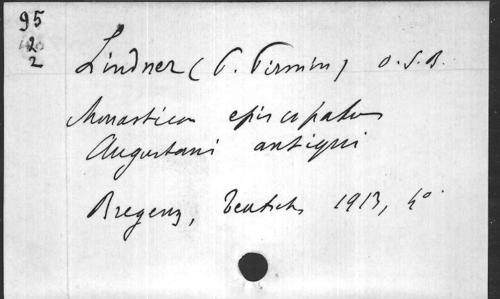 95
2
2
Lindner (P. Pirmin) O.S.B.
Monasticon episcopatus
Augustani antiqui
Bregenz, Teutsch, 1913, 4°